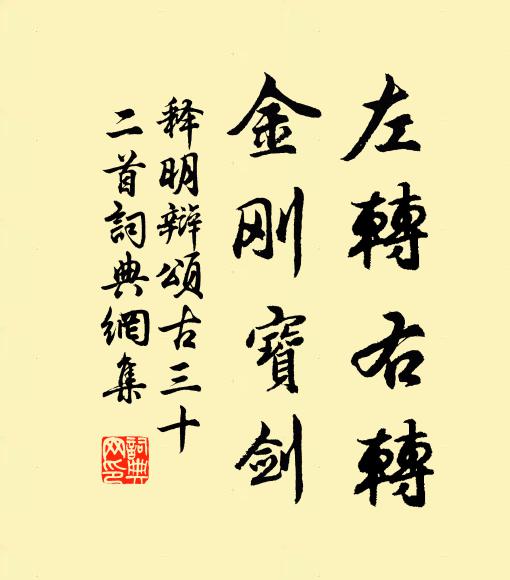 左轉右轉
金刚寶劍
释明辯頌古三十
二首詞典網集
詞典网印